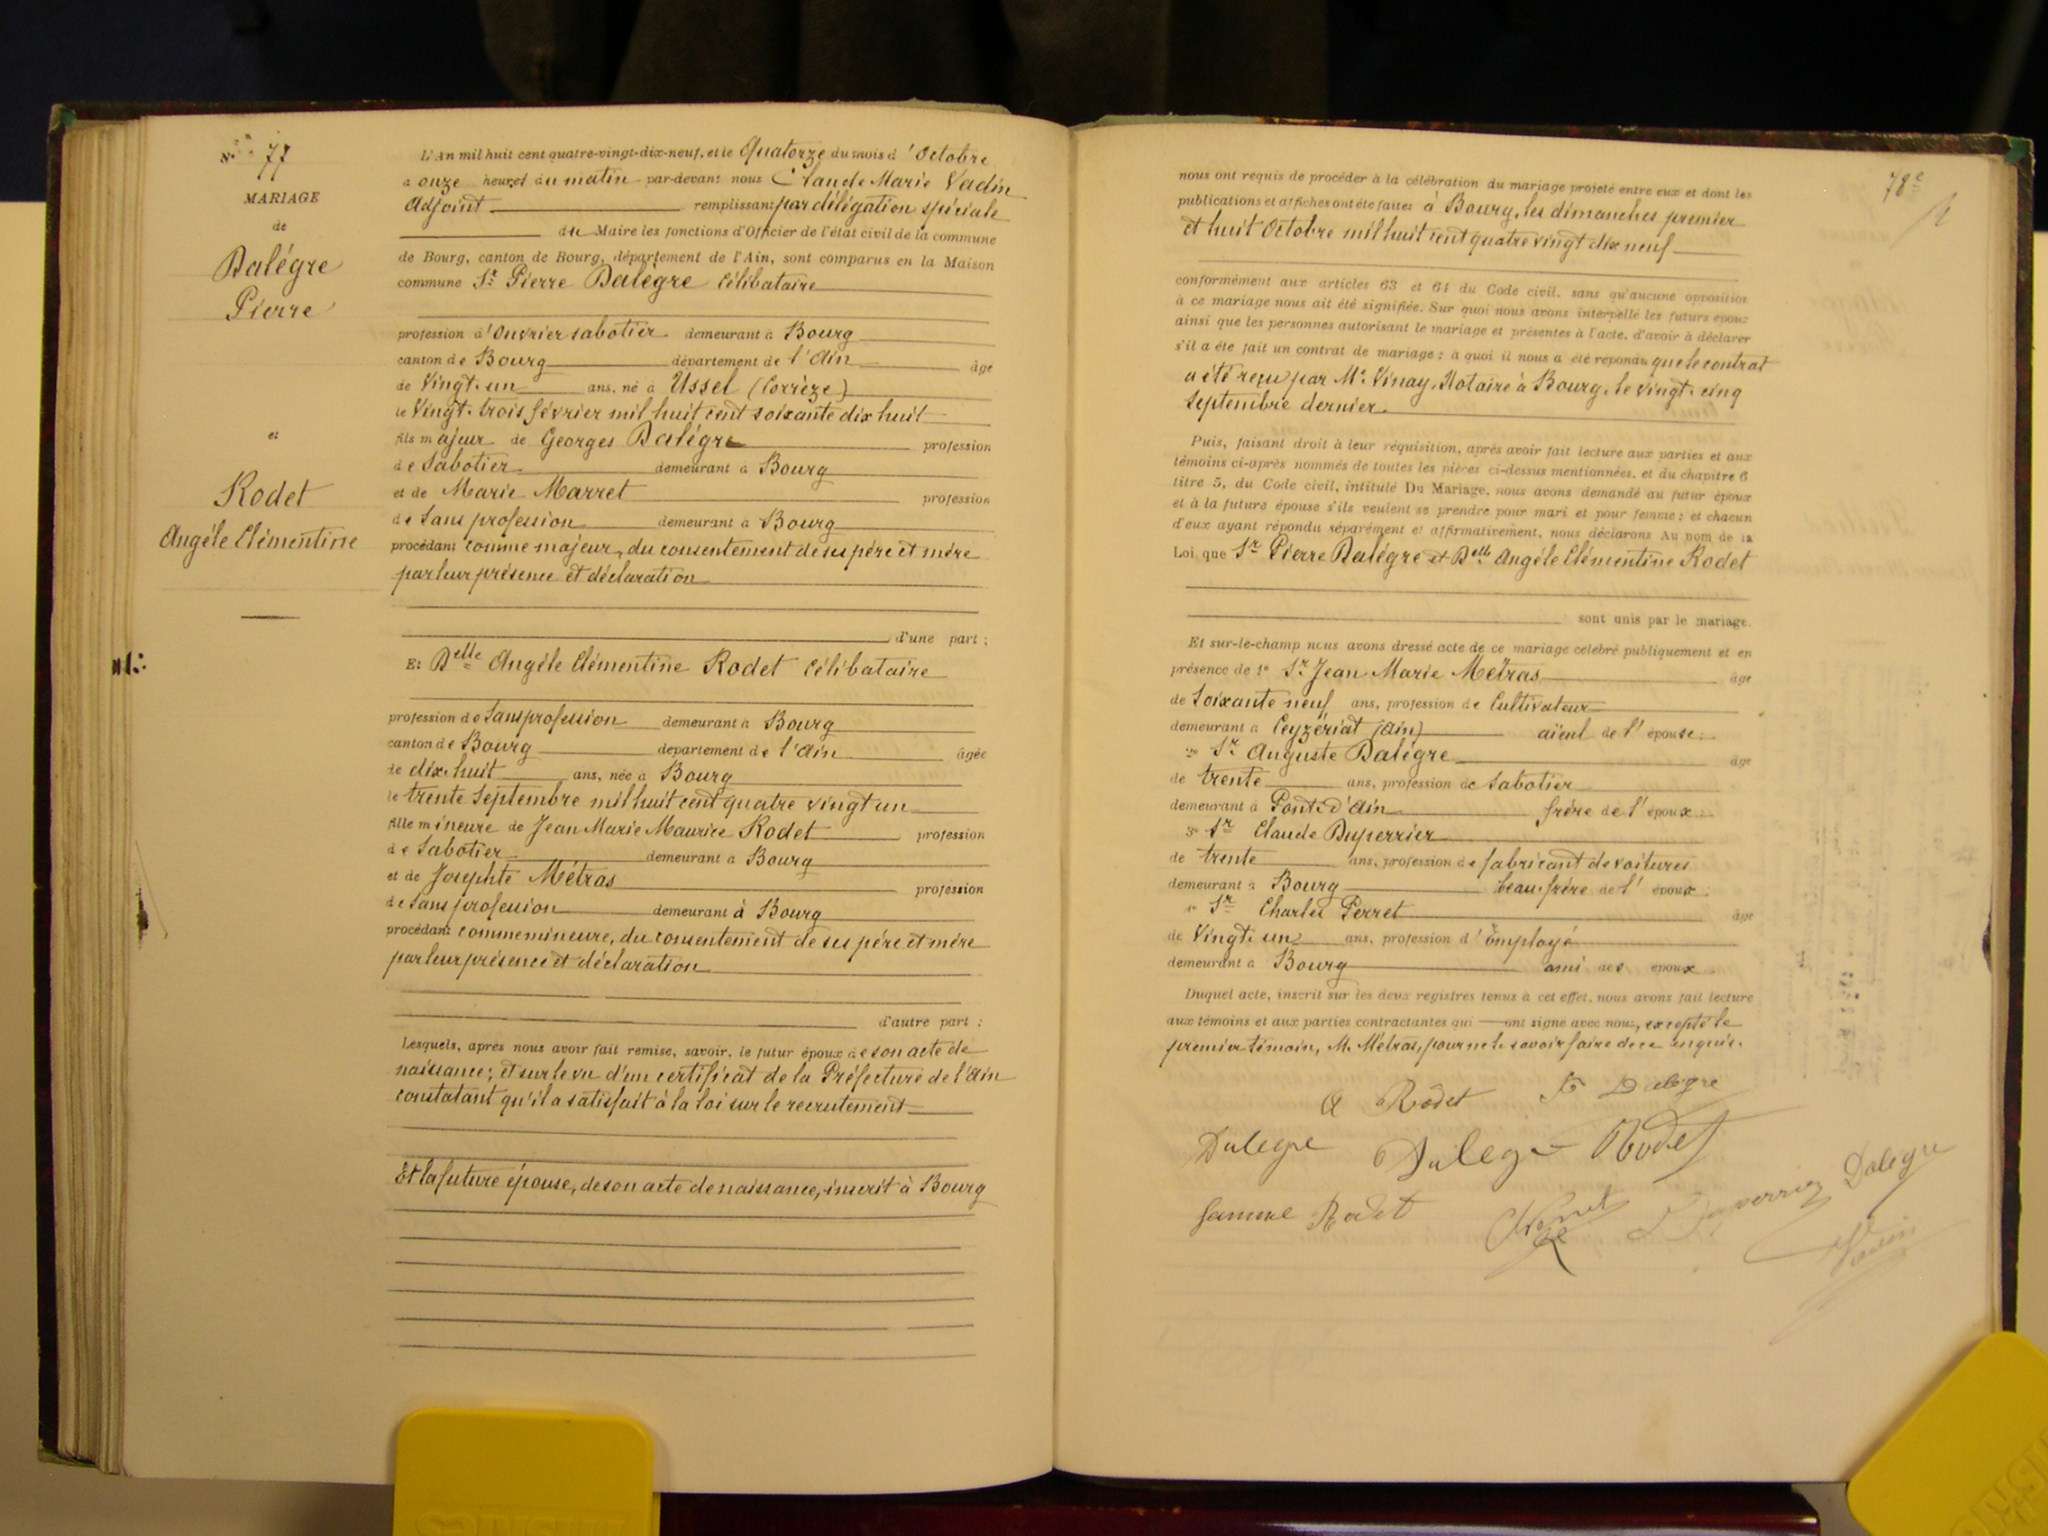 N° 77
MARIAGE
de
Dalégre
Pierre
et
Rodet
Angéle Clémentine
L'An mil huit cent quatre-vingt-dix-neuf, et le Quatorze du mois d'Octobre
à onze heures du matin par-devant nous Claude Marie Vadin
Adjoint remplissant par délégation spéciale
du Maire les fonctions d'Officier de l'état civil de la commune
de Bourg, canton de Bourg, département de l'Ain, sont comparus en la Maison
commune Sr Pierre Dalégre Célibataire
profession d'Ouvrier sabotier demeurant à Bourg
canton de Bourg département de l'Ain âgé
de Vingt-un ans, né à Ussel (Corrèze)
le Vingt-trois février mil huit cent soixante dix huit
fils majeur de Georges Dalégre profession
de Sabotier demeurant à Bourg
et de Marie Marret profession
de Sans profession demeurant à Bourg
procédant comme majeur, du consentement de ses pére et mére
par leur présence et déclaration
d'une part ;
Et Delle Angéle Clémentine Rodet Célibataire
profession de Sans profession demeurant à Bourg
canton de Bourg département de l'Ain âgée
de dix-huit ans, née à Bourg
le trente Septembre mil huit cent quatre vingt un
fille mineure de Jean Marie Maurice Rodet profession
de Sabotier demeurant à Bourg
et de Josephte Métras profession
de Sans profession demeurant à Bourg
procédant comme mineure, du consentement de ses pére et mére
par leur présence et déclaration
d'autre part ;
Lesquels, après nous avoir fait remise, savoir, le futur époux de son acte de
naissance ; et sur le vu d'un certificat de la Préfecture de l'Ain
constatant qu'il a satisfait à la loi sur le recrutement
Et la future épouse, de son acte de naissance, inscrit à Bourg
78e
nous ont requis de procéder à la célébration du mariage projeté entre eux et dont les
publications et affiches ont été faites à Bourg, les dimanches premier
et huit Octobre mil huit cent quatre vingt dix neuf
conformément aux articles 63 et 64 du Code civil, sans qu'aucune opposition
à ce mariage nous ait été signifiée. Sur quoi nous avons interpellé les futurs époux
ainsi que les personnes autorisant le mariage et présentes à l'acte, d'avoir à déclarer
s'il a été fait un contrat de mariage ; à quoi il nous a été répondu que le contrat
a été reçu par Me Vinay, Notaire à Bourg, le vingt-cinq
Septembre dernier.
Puis, faisant droit à leur réquisition, après avoir fait lecture aux parties et aux
témoins ci-après nommés de toutes les pièces ci-dessus mentionnées, et du chapitre 6
titre 5, du Code civil, intitulé Du Mariage, nous avons demandé au futur époux
et à la future épouse s'ils veulent se prendre pour mari et pour femme ; et chacun
d'eux ayant répondu séparément et affirmativement, nous déclarons Au nom de la
Loi que Sr Pierre Dalégre et Delle Angéle Clémentine Rodet
sont unis par le mariage.
Et sur-le-champ nous avons dressé acte de ce mariage célébré publiquement et en
présence de 1° Sr Jean Marie Métras âgé
de Soixante neuf ans, profession de Cultivateur
demeurant à Ceyzériat (Ain) aïeul de l'épouse ;
2° Sr Auguste Dalégre âgé
de trente ans, profession de Sabotier
demeurant à Pont-d'Ain frére de l'époux ;
3° Sr Claude Duperrier
de trente ans, profession de fabricant de voitures
demeurant à Bourg beau-frére de l'époux ;
4° Sr Charles Perret âgé
de Vingt-un ans, profession d'Employé
demeurant à Bourg ami des époux
Duquel acte, inscrit sur les deux registres tenus à cet effet, nous avons fait lecture
aux témoins et aux parties contractantes qui ont signé avec nous, excepté le
premier témoin, M. Métras, pour ne le savoir faire de ce enquis.
A Rodet P Dalegre
Dalegre Dalegre Rodet
femme Rodet Perret Duperrier Dalegre
Vadin